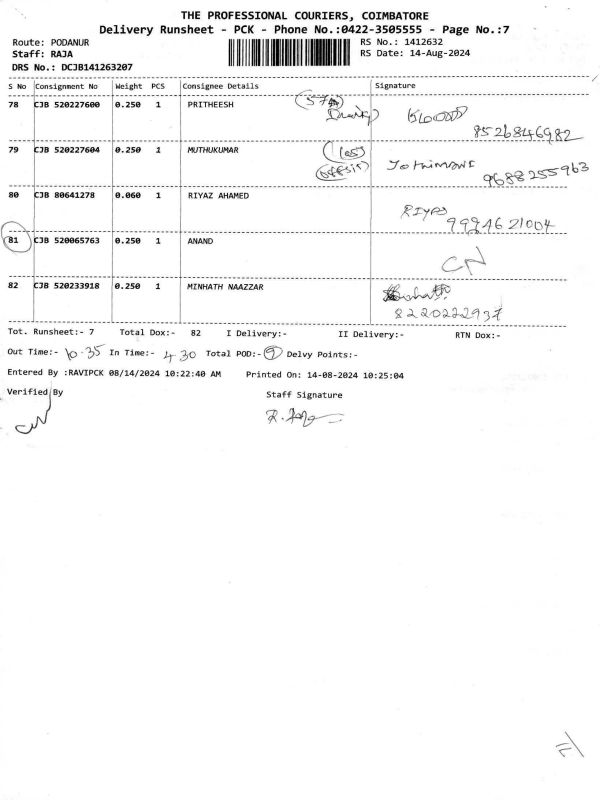 THE PROFESSIONAL COURIERS, COIMBATORE
Delivery Runsheet - PCK - Phone No.:0422-3505555 - Page No.:7
Route: PODANUR RS No.: 1412632
Staff: RAJA RS Date: 14-Aug-2024
DRS No.: DCJB141263207
S No Consignment No Weight PCS Consignee Details Signature
78 CJB 520227600 0.250 1 PRITHEESH
8526846982
79 CJB 520227604 0.250 1 MUTHUKUMAR
9688255963
80 CJB 80641278 0.060 1 RIYAZ AHAMED RIYAS
9994621004
81 CJB 520065763 0.250 1 ANAND CN
82 CJB 520233918 0.250 1 MINHATH NAAZZAR
8220222937
Tot. Runsheet:- 7 Total Dox:- 82 I Delivery:- II Delivery:- RTN Dox:-
Out Time:- 10.35 In Time:- 4 30 Total POD:- 9 Delvy Points:-
Entered By :RAVIPCK 08/14/2024 10:22:40 AM Printed On: 14-08-2024 10:25:04
Verified By Staff Signature